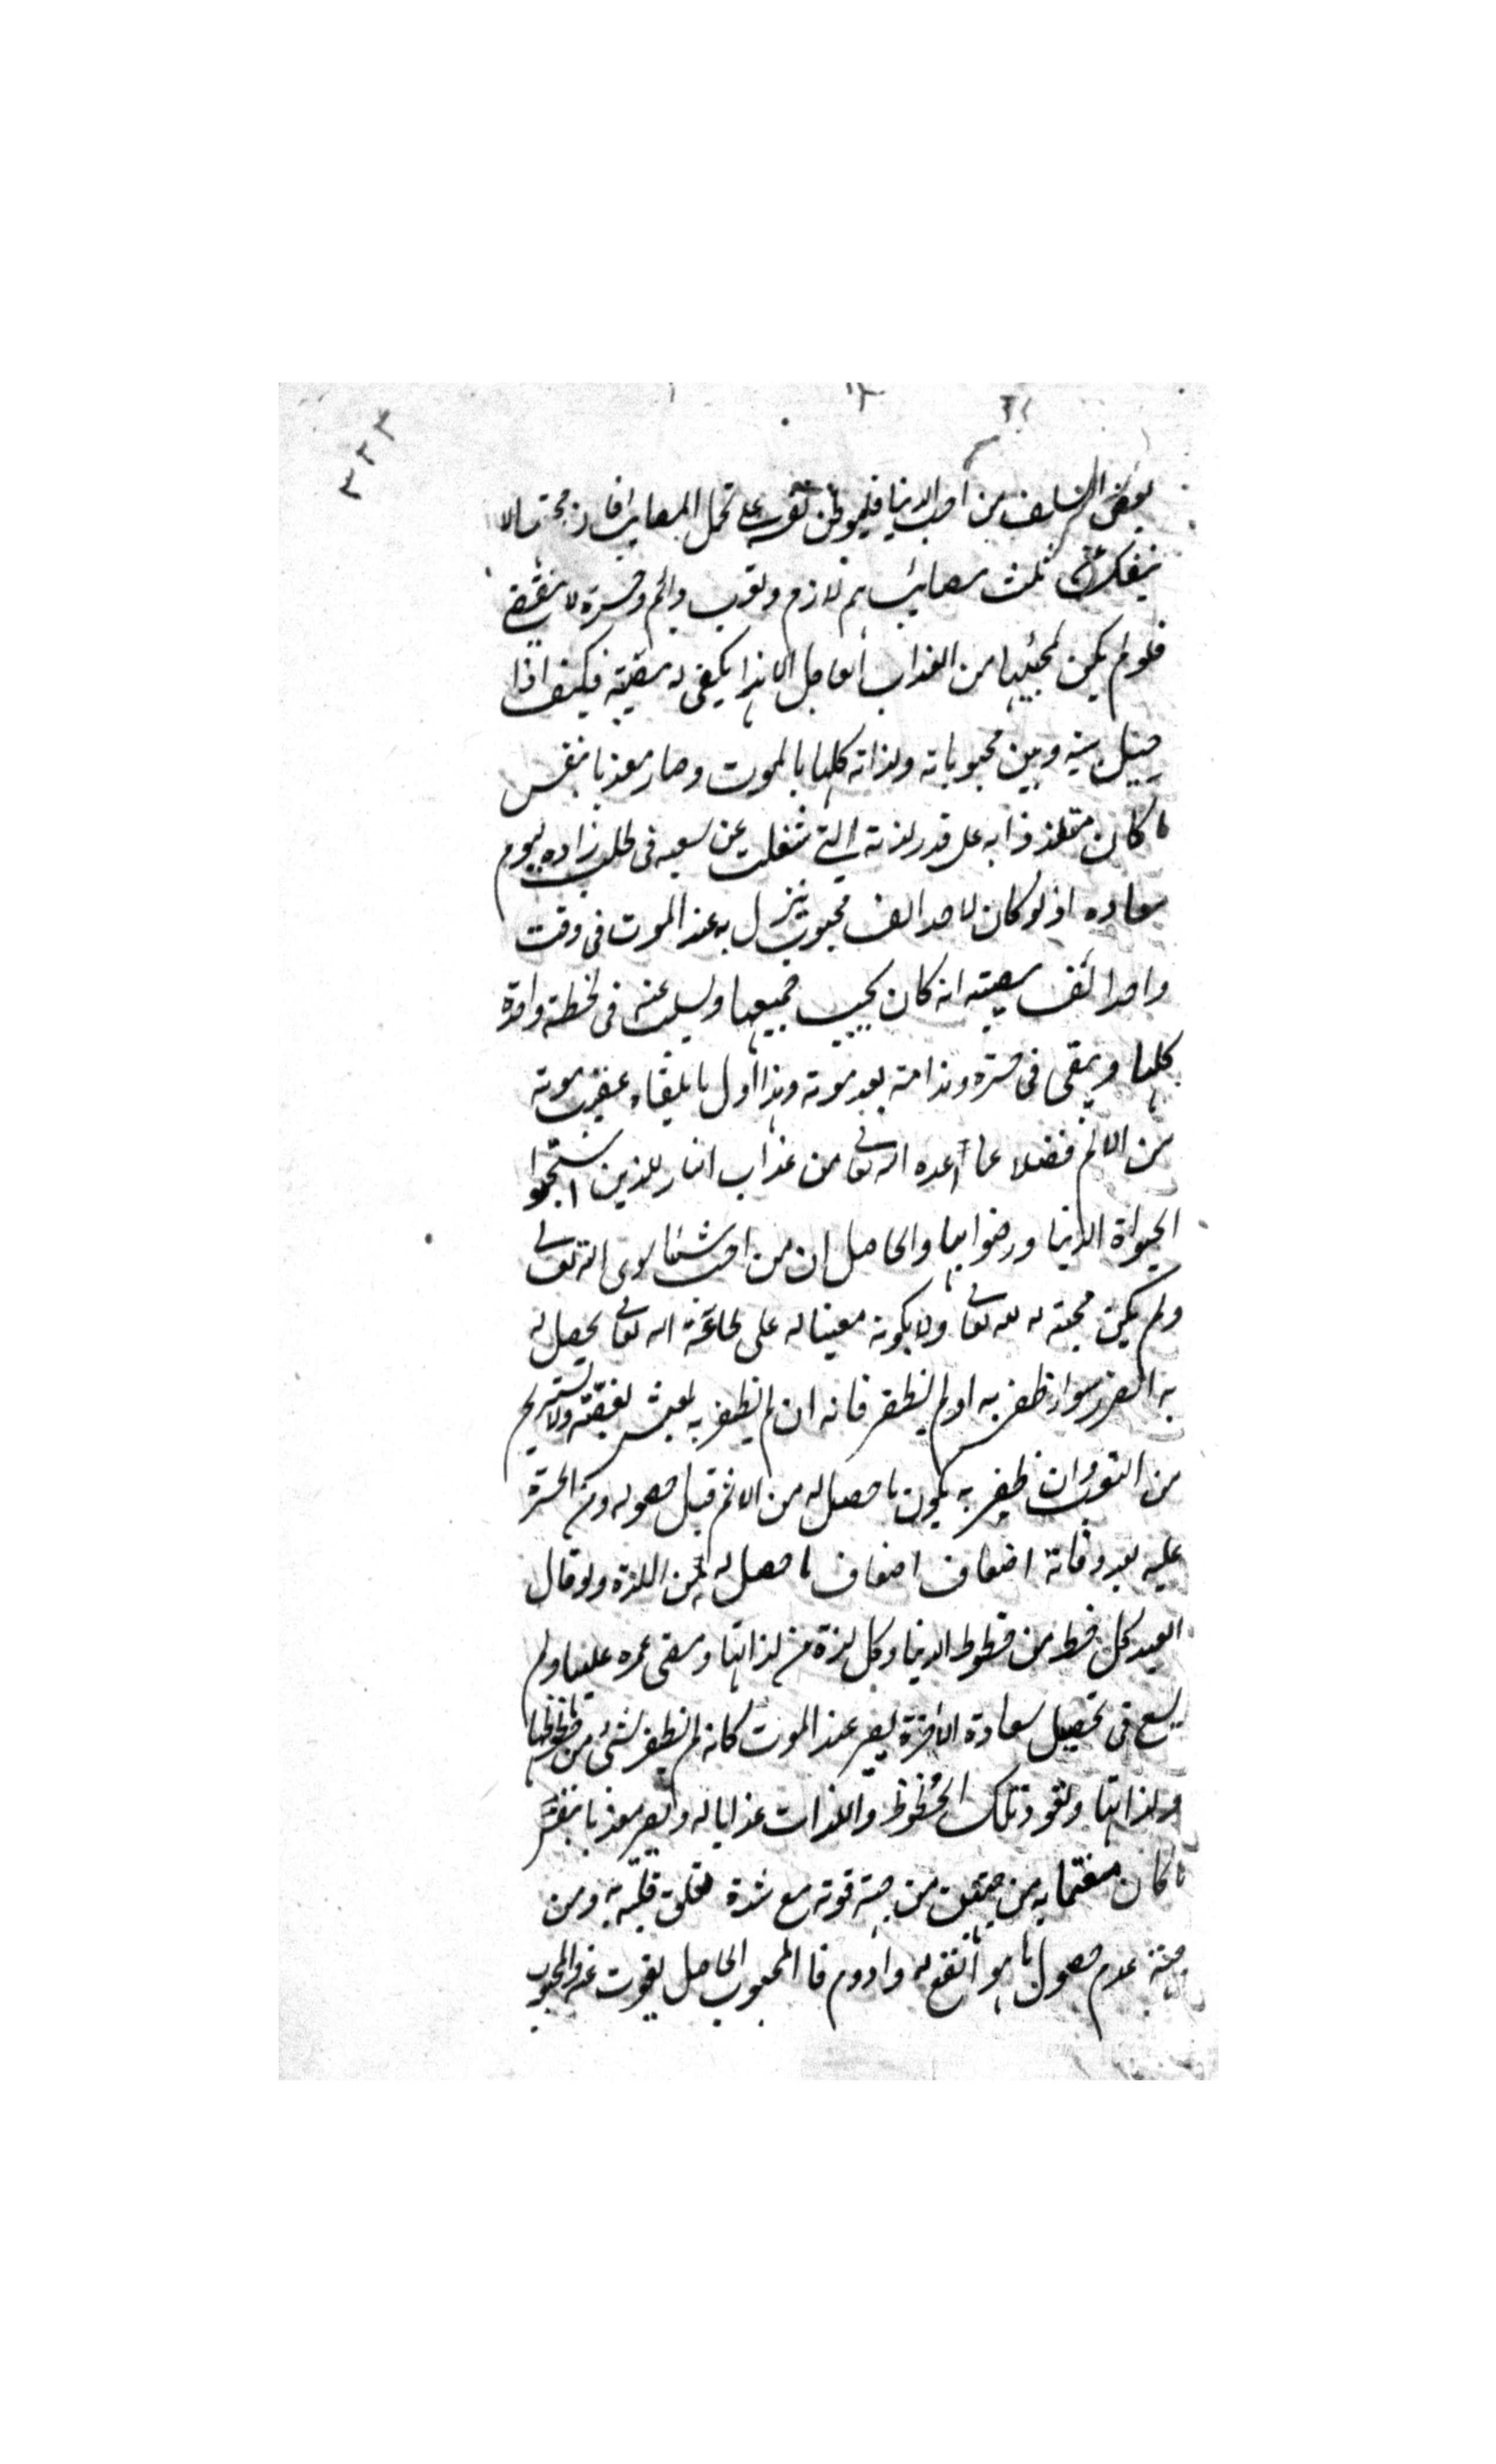 ٣٣٣
بعض السلف من احب الدنيا فليوطن نفسه على تحمل المصايب فان محبتها لا
ينفك عن ثلث مصائب هم لازم وتعب دائم وحسرة لا ينقضى
فلو لم يكن لمحبيها من العذاب العاجل الا هذا يكفى له مصيبة فكيف اذا
حيل بينه وبين محبوباته ولذاته كلها بالموت وصار معذبا بنفس
ما كان متلذذا به على قدر لذته التى شغلت عن سعيه فى طلب زاده ليوم
معاده اذ لو كان لاحد الف محبوب ينزل به عند الموت فى وقت
واحد الف مصيبة انه كان يحب جميعها وسلبت عنه فى لحظة واحدة
كلها ويبقى فى حسرة وندامة بعد موته وهذا اول ما يلقاه عقيب موته
من الالم فضلا عما اعده الله تعالى من عذاب النار للذين استحبوا
الحيواة الدنيا ورضوا بها والحاصل ان من احب شيئا سوى الله تعالى
ولم يكن محبته له لله تعالى ولا لكونه معينا له على طاعة الله تعالى يحصل له
به الضرر سواء ظفر به او لم يظفر فانه ان لم يظفر به يعيش بغصته ولا يستريح
من التعب وان ظفر به يكون ما حصل له من الالم قبل حصوله ومن الحسرة
عليه بعد وفاته اضعاف اضعاف ما حصل له من اللذة ولو نال
العبد كل حظ من حظوظ الدنيا وكل لذة من لذاتها ومضى عمره عليها ولم
يسع فى تحصيل سعادة الاخرة يصير عند الموت كانه لم يظفر بشئ من حظوظها
ولذاتها وتعود تلك الحظوظ واللذات عذابا له ويصير معذبا بنفس
ما كان منعما به من جهتين من جهة فوته مع شدة تعلق قلبه به ومن
جهة عدم حصول ما هو انفع له وادوم فا المحبوب الحاصل يفوت عنه والمحبوب